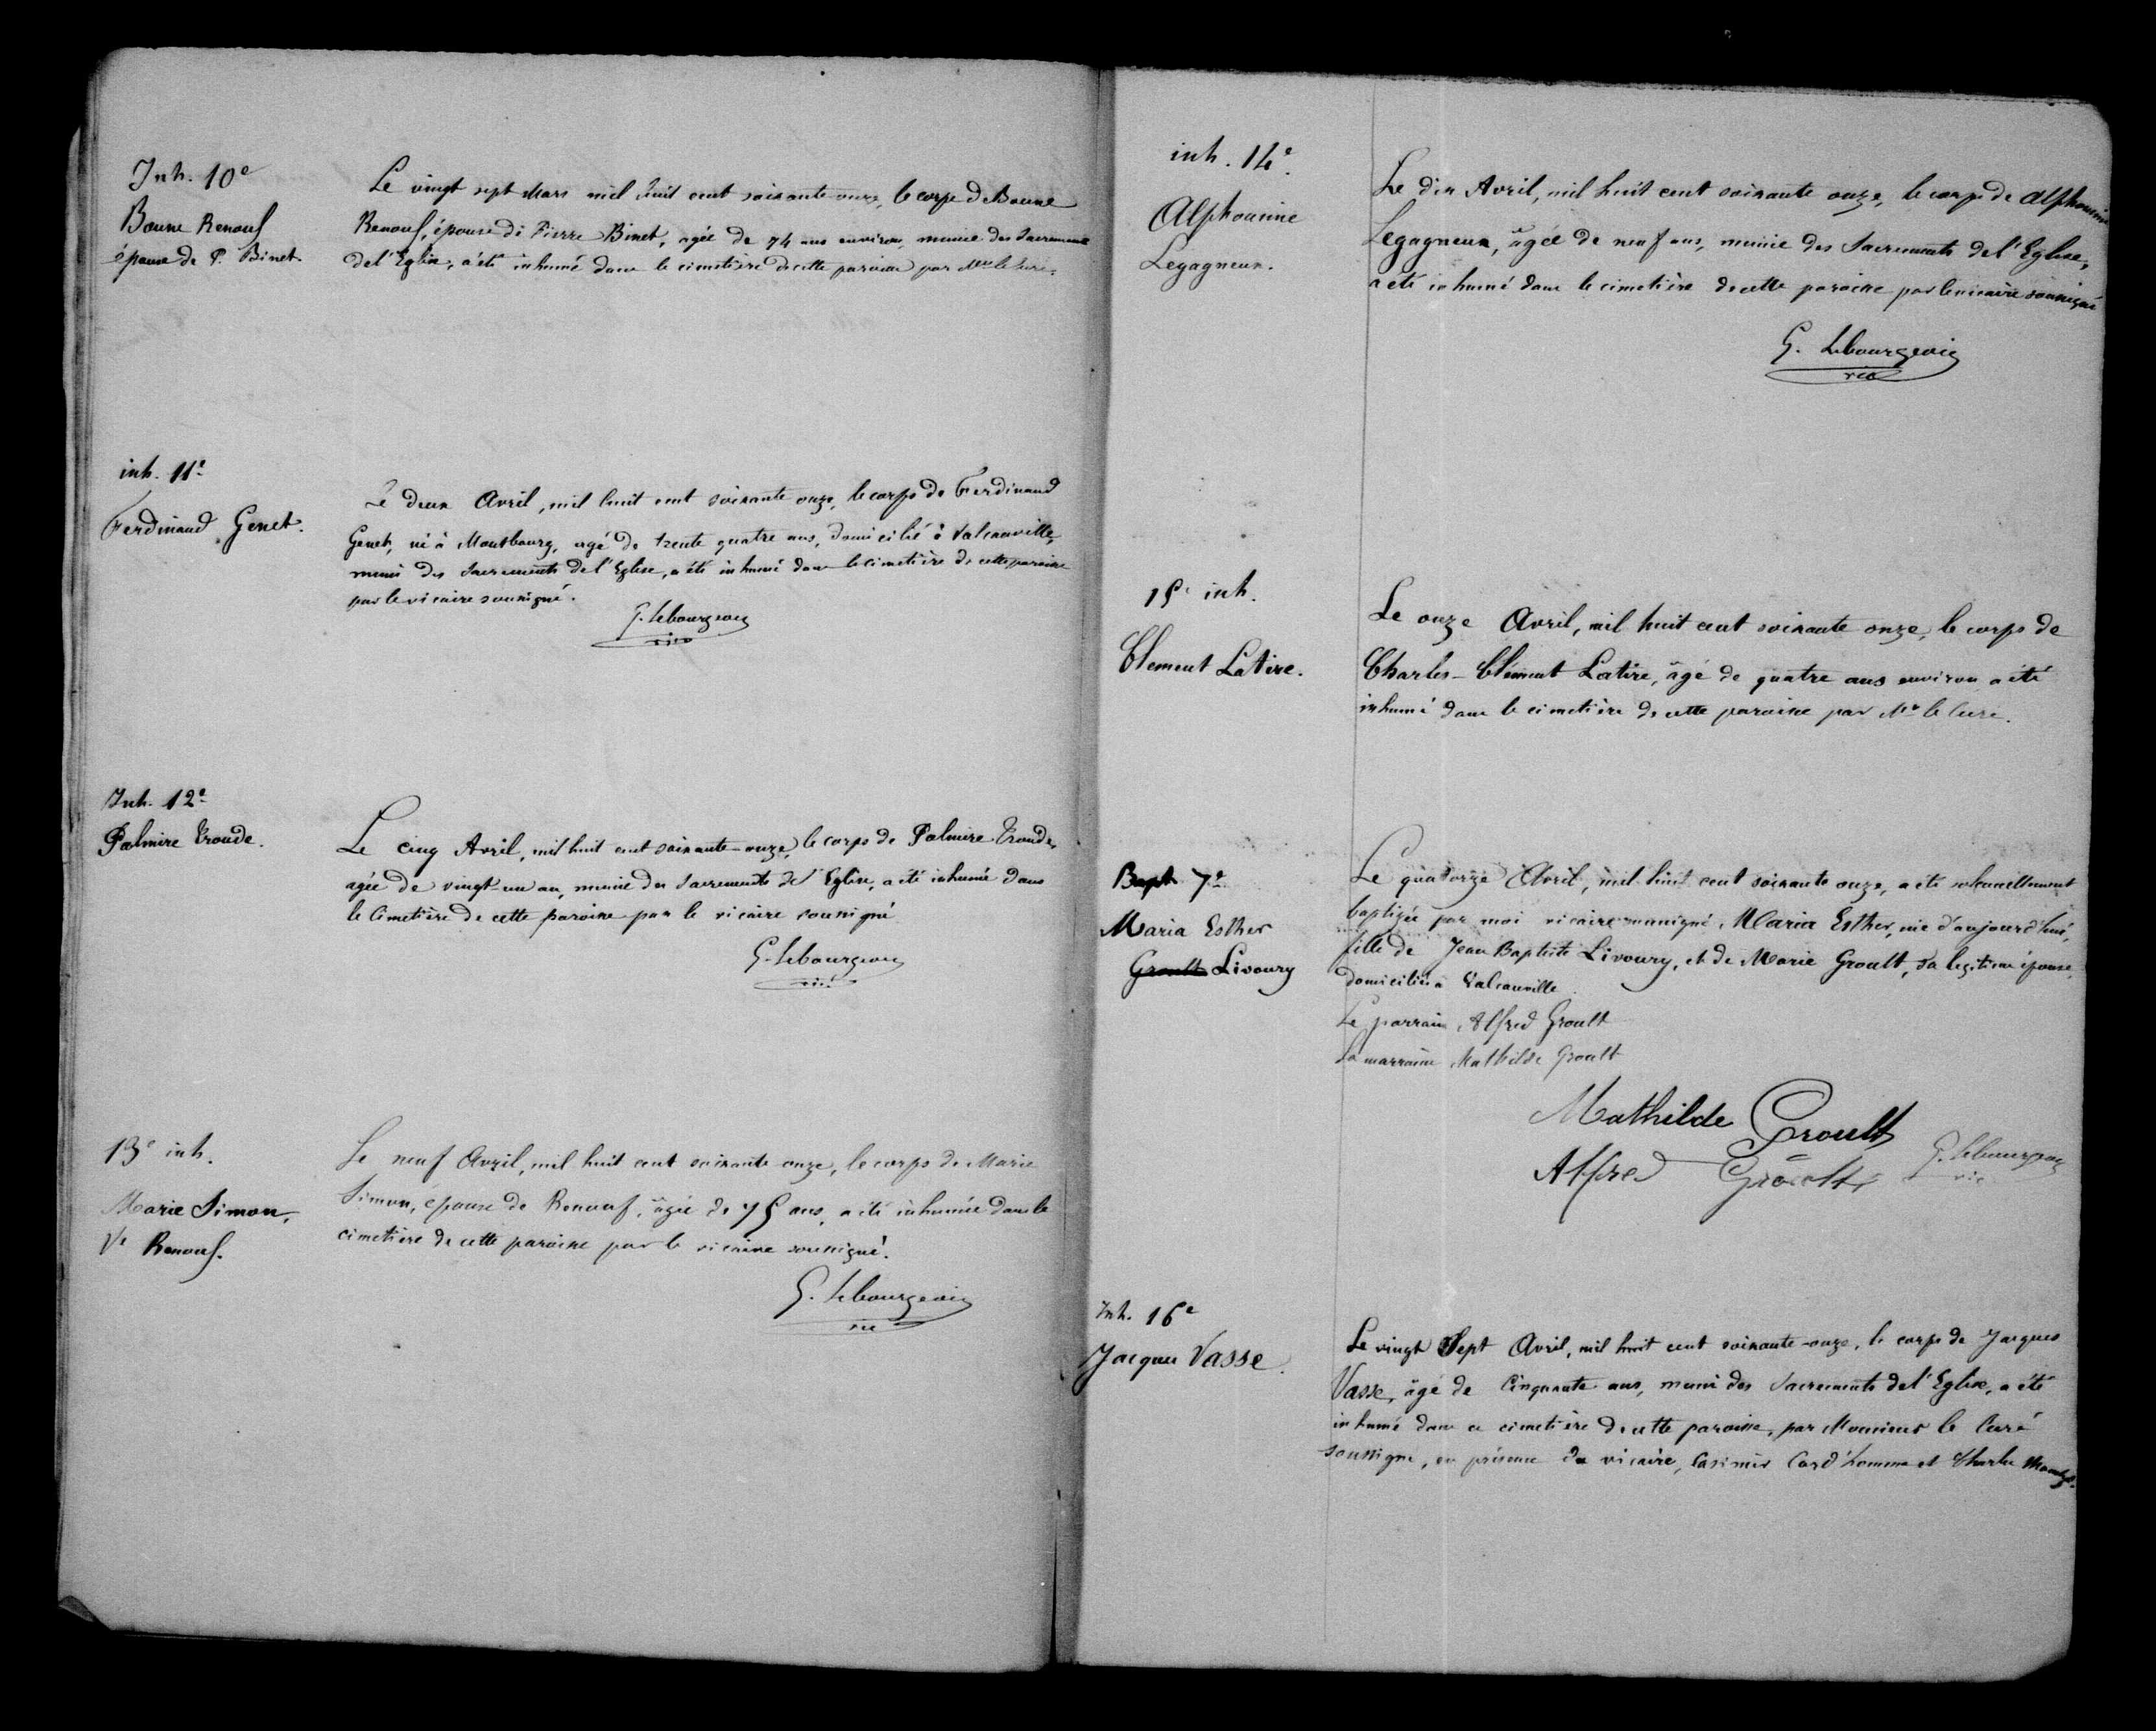 Inh. 10e
Bonne Renouf
épouse de P. Binet.
Le vingt sept Mars mil huit cent soixante onze, le corps de Bonne
Renouf, épouse de Pierre Binet, agée de 74 ans environ, munie des Sacrements
de l'Eglise, a été inhumé dans le cimetière de cette paroisse par Mr le Curé.
inh. 11e
Ferdinand Genet.
Le deux Avril, mil huit cent soixante onze, le corps de Ferdinand
Genet, né à Montbourg, agé de trente quatre ans, domicilié à Valcanville,
muni des Sacrements de l'Eglise, a été inhumé dans le cimetière de cette paroisse
par le vicaire soussigné.
G. Lebourgeois
vic
Inh. 12e
Palmire Troude.
Le cinq Avril, mil huit cent soixante-onze, le corps de Palmire Troude,
agée de vingt-un an, munie des Sacrements de l'Eglise, a été inhumée dans
le Cimetière de cette paroisse par le vicaire soussigné
G. Lebourgeois
vic
13e inh.
Marie Simon,
Ve Renouf.
Le neuf Avril, mil huit cent soixante onze, le corps de Marie
Simon, épouse de Renouf, âgée de 75 ans, a été inhumée dans le
cimetière de cette paroisse par le vicaire soussigné.
G. Lebourgeois
vic
inh. 14e
Alphonsine
Legagneux.
Le dix Avril, mil huit cent soixante onze, le corps de Alphonsine
Legagneux, âgée de neuf ans, munie des Sacrements de l'Eglise,
a été inhumé dans le cimetière de cette paroisse par le vicaire soussigné
G. Lebourgeois
vic
15e inh.
Clement Latire.
Le onze Avril, mil huit cent soixante onze, le corps de
Charles-Clément Latire, âgé de quatre ans environ a été
inhumé dans le cimetière de cette paroisse par Mr le Curé.
Bapt 7e
Maria Esther
Groult Livoury
Le quatorze Avril, mil huit cent soixante onze, a été solennellement
baptisée par moi vicaire soussigné, Maria Esther, née d'aujourd'hui,
fille de Jean Baptiste Livoury, et de Marie Groult, sa legitime épouse,
domiciliés à Valcanville
Le parrain Alfred Groult
La marraine Mathilde Groult
Mathilde Groult
Alfred Groult G. Lebourgeois
vic
Inh. 16e
Jacques Vasse.
Le vingt Sept Avril, mil huit cent soixante-onze, le corps de Jacques
Vasse, âgé de Cinquante ans, muni des Sacrements de l'Eglise, a été
inhumé dans ce cimetière de cette paroisse, par Monsieur le Curé
soussigné, en présence du vicaire, Casimir Card'homme et Charles